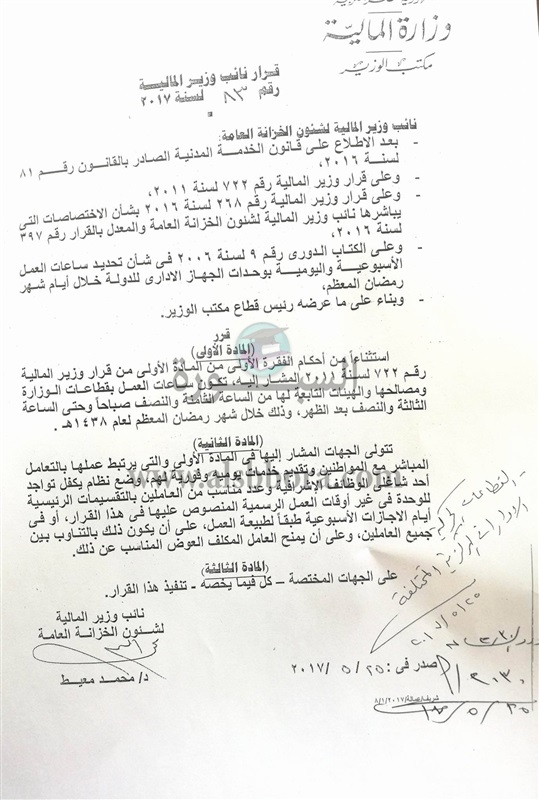 وزارة المالية
مكتب الوزير
قرار نائب وزير المالية
رقم ٨٣ لسنة ٢٠١٧
نائب وزير المالية لشئون الخزانة العامة:
- بعد الاطلاع على قانون الخدمة المدنية الصادر بالقانون رقم ٨١
لسنة ٢٠١٦،
- وعلى قرار وزير المالية رقم ٧٢٢ لسنة ٢٠١١،
- وعلى قرار وزير المالية رقم ٢٦٨ لسنة ٢٠١٦ بشأن الاختصاصات التى
يباشرها نائب وزير المالية لشئون الخزانة العامة والمعدل بالقرار رقم ٣٩٧
لسنة ٢٠١٦،
- وعلى الكتاب الدورى رقم ٩ لسنة ٢٠٠٦ فى شأن تحديد ساعات العمل
الأسبوعية واليومية بوحدات الجهاز الادارى للدولة خلال أيام شهر
رمضان المعظم،
- وبناء على ما عرضه رئيس قطاع مكتب الوزير.
قرر
(المادة الأولى)
استثناءاً من أحكام الفقرة الأولى من المادة الأولى من قرار وزير المالية
رقم ٧٢٢ لسنة ٢٠١١ المشار إليه، تكون ساعات العمل بقطاعات الوزارة
ومصالحها والهيئات التابعة لها من الساعة الثامنة والنصف صباحاً وحتى الساعة
الثالثة والنصف بعد الظهر، وذلك خلال شهر رمضان المعظم لعام ١٤٣٨هـ.
(المادة الثانية)
تتولى الجهات المشار إليها فى المادة الأولى والتى يرتبط عملها بالتعامل
المباشر مع المواطنين وتقديم خدمات يومية وفورية لهم، وضع نظام يكفل تواجد
أحد شاغلى الوظائف الإشرافية وعدد مناسب من العاملين بالتقسيمات الرئيسية
للوحدة فى غير أوقات العمل الرسمية المنصوص عليها فى هذا القرار، أو فى
أيام الاجازات الأسبوعية طبقاً لطبيعة العمل، على أن يكون ذلك بالتناوب بين
جميع العاملين، وعلى أن يمنح العامل المكلف العوض المناسب عن ذلك.
(المادة الثالثة)
على الجهات المختصة – كل فيما يخصه – تنفيذ هذا القرار.
نائب وزير المالية
لشئون الخزانة العامة
د/ محمد معيط
صدر فى: ٢٥ / ٥ / ٢٠١٧
www.alsbbora.com